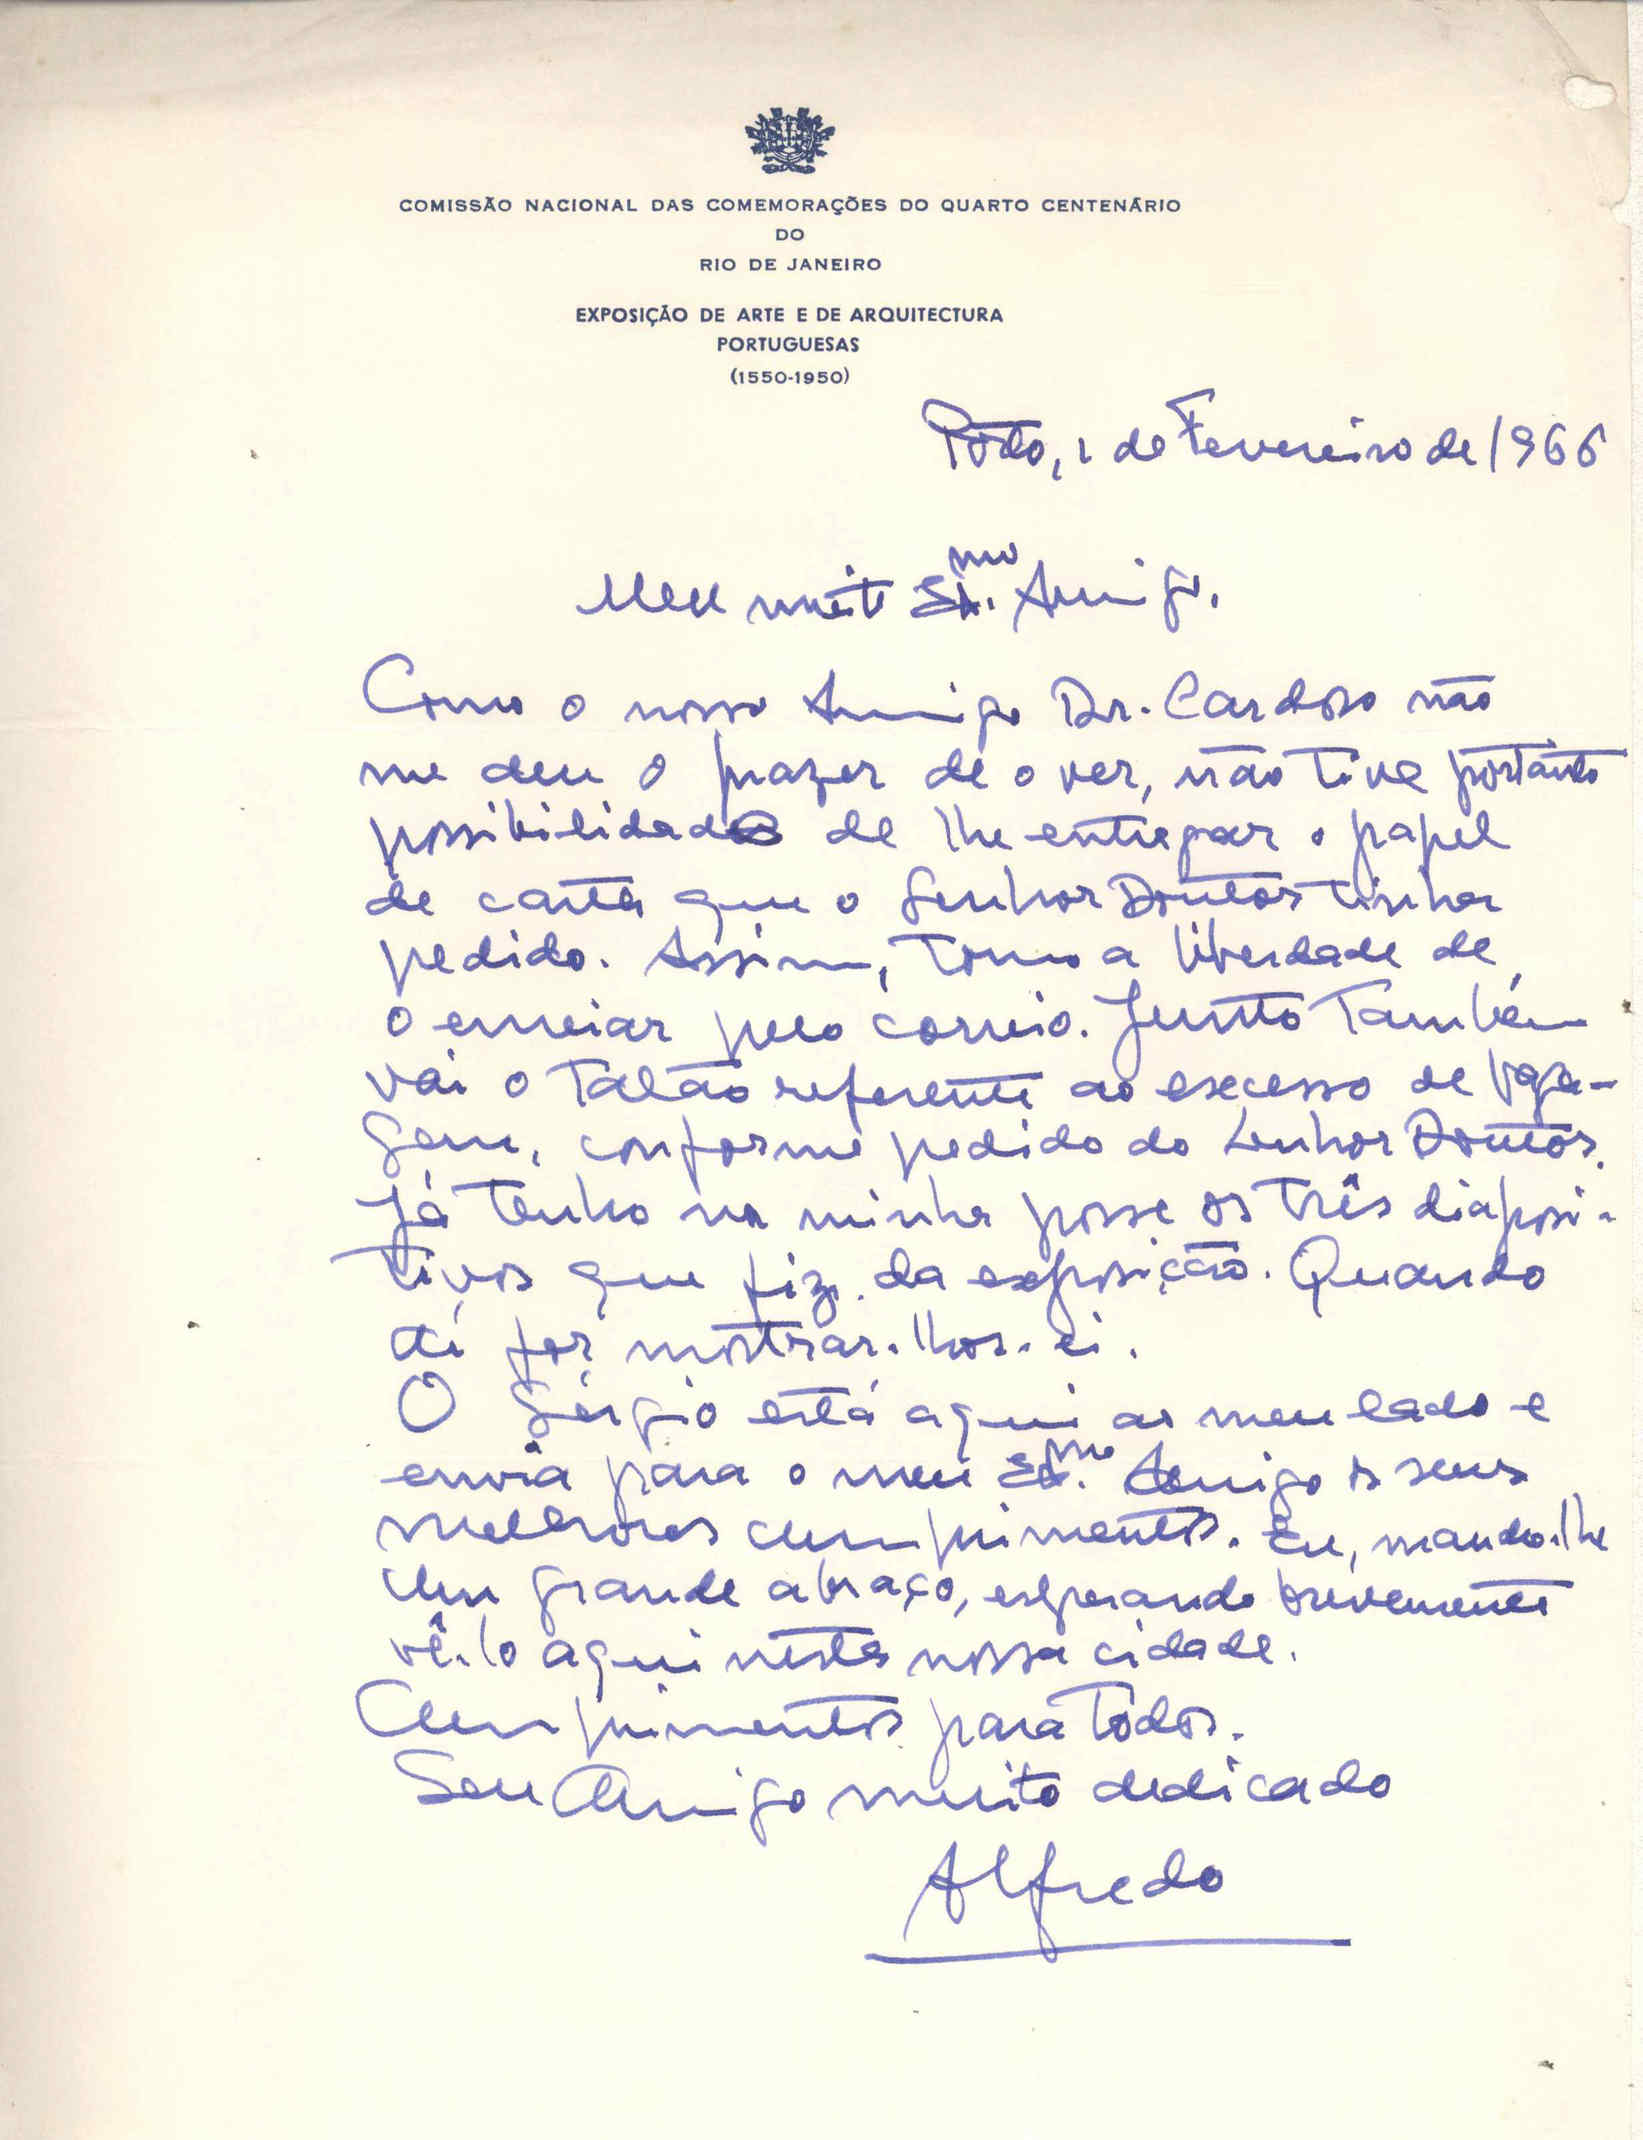 COMISSÃO NACIONAL DAS COMEMORAÇÕES DO QUARTO CENTENÁRIO
DO
RIO DE JANEIRO
EXPOSIÇÃO DE ARTE E DE ARQUITECTURA
PORTUGUESAS
(1550-1950)
Pôrto, 1 de Fevereiro de 1966
Meu muito Ex.mo Amigo.
Como o nosso Amigo Dr. Cardoso não
me deu o prazer de o ver, não tive portanto
possibilidade de lhe entregar o papel
de carta que o Senhor Doutor tinha
pedido. Assim, tomo a liberdade de
o enviar pelo correio. Junto também
vai o talão referente ao excesso de baga-
gem, conforme pedido do Senhor Doutor.
Já tenho na minha posse os três diaposi-
tivos que fiz da exposição. Quando
aí for mostrar-lhos-ei.
O Sérgio está aqui ao meu lado e
envia para o meu Ex.mo Amigo os seus
melhores cumprimentos. Eu, mando-lhe
um grande abraço, esperando brevemente
vê-lo aqui nesta nossa cidade.
Cumprimentos para todos.
Seu Amigo muito dedicado
Alfredo